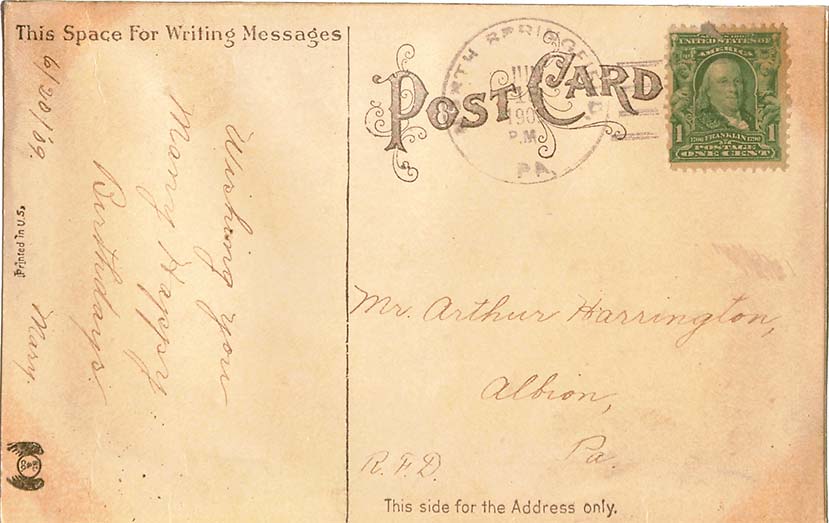 This Space For Writing Messages
6/20/09.
Wishing you
Many Happy
Birthdays.
Mary.
Printed in U.S.
POST CARD
NORTH SPRINGFIELD
JUN
190
P.M.
PA.
UNITED STATES OF
AMERICA
1 1
FRANKLIN
POSTAGE
ONE CENT
Mr. Arthur Harrington,
Albion,
Pa.
R.F.D.
This side for the Address only.